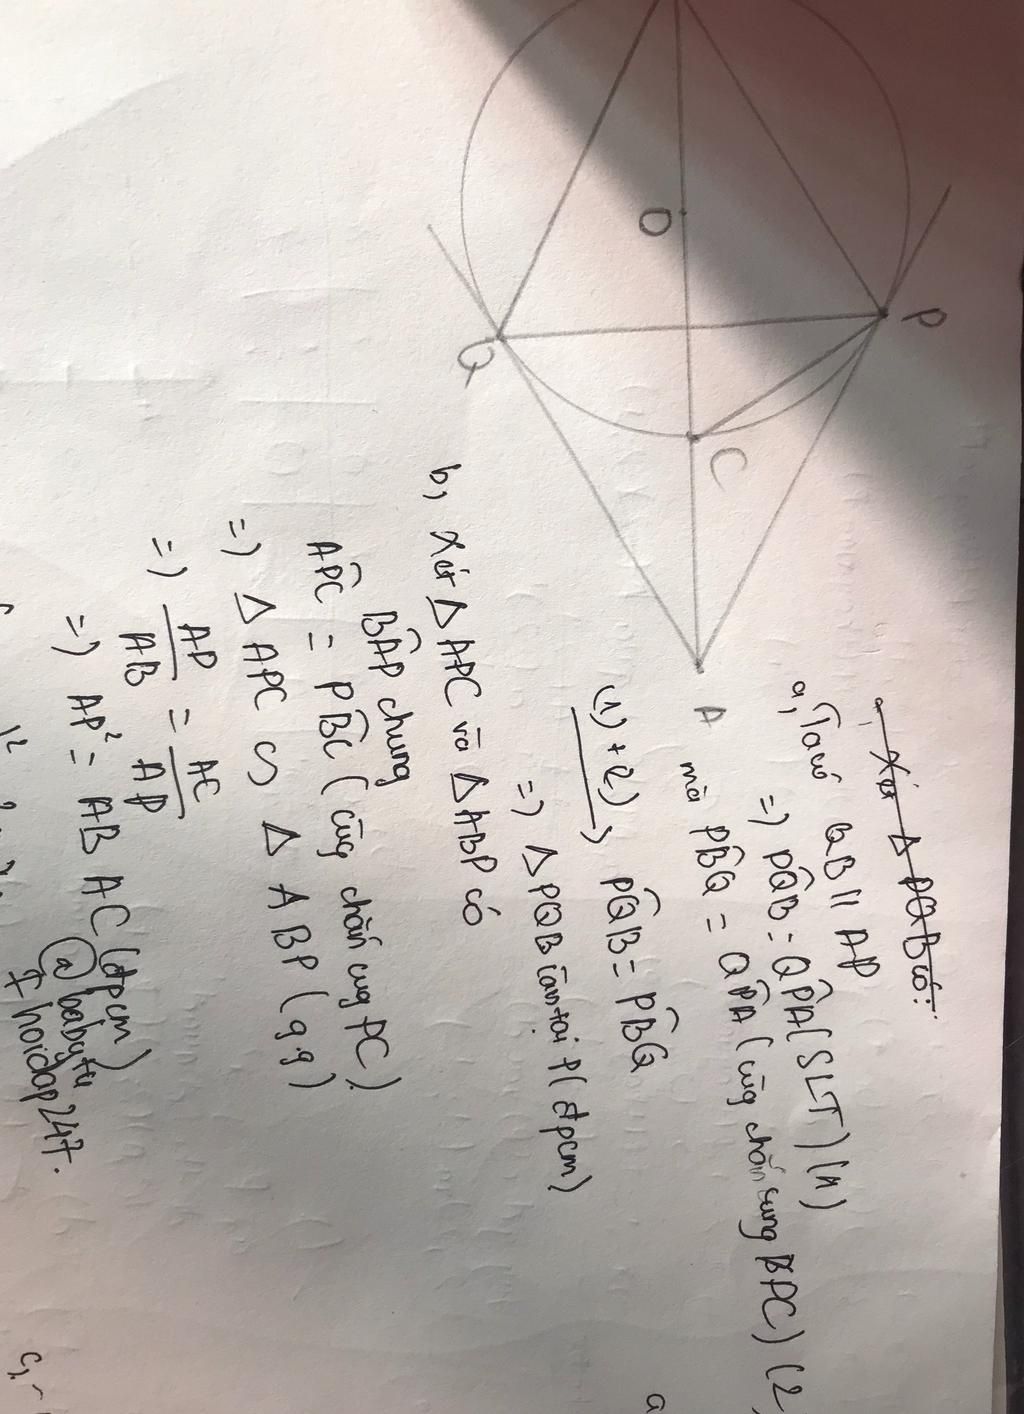 O
P
Q
C
A
a, Xét Δ PQB có:
a, Ta có QB // AP
=> PQB = QPA (SLT) (1)
mà PBQ = QPA (cùng chắn cung BPC) (2)
(1) + (2) => PQB = PBQ
=> Δ PQB cân tại P (đpcm)
b, Xét Δ APC và Δ ABP có
BAP chung
APC = PBC (cùng chắn cung PC)
=> Δ APC ∽ Δ ABP (g.g)
=> AP/AB = AC/AP
=> AP² = AB AC (đpcm)
@babytu
hoidap247.
c,
a